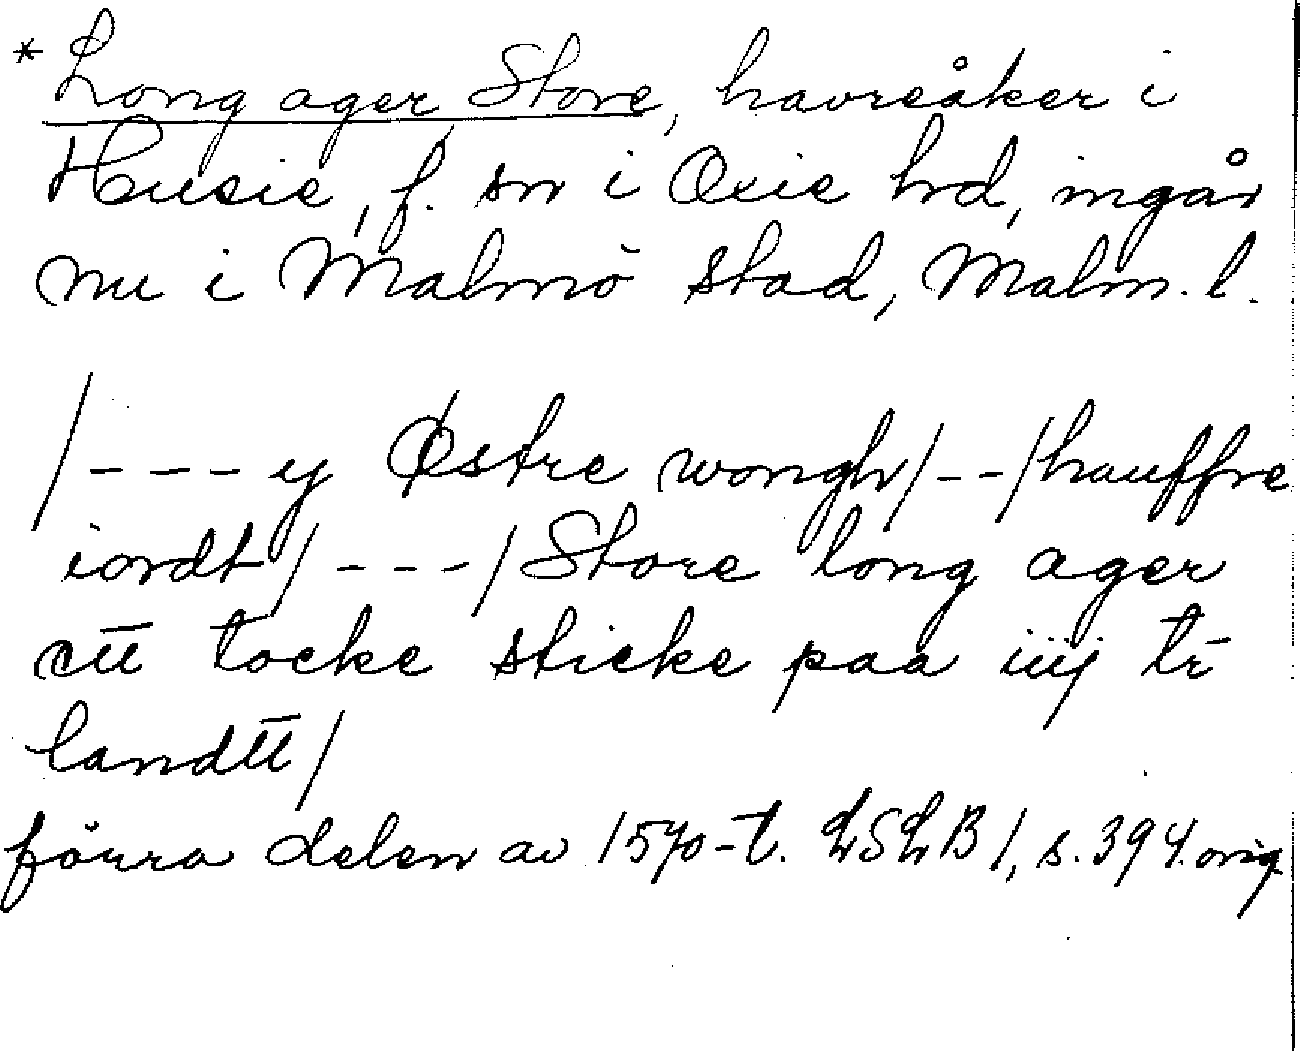 * Long ager Store, havreåker i
Husie, f. sn i Oxie hd, ingår
nu i Malmö stad, Malm. l.
/---y Østre wongh/--/hauffre
iordt/---/Store long ager
ett tocke sticke paa iiij tr
landtt/
förra delen av 1570-t. LSLB 1, s. 394. orig.